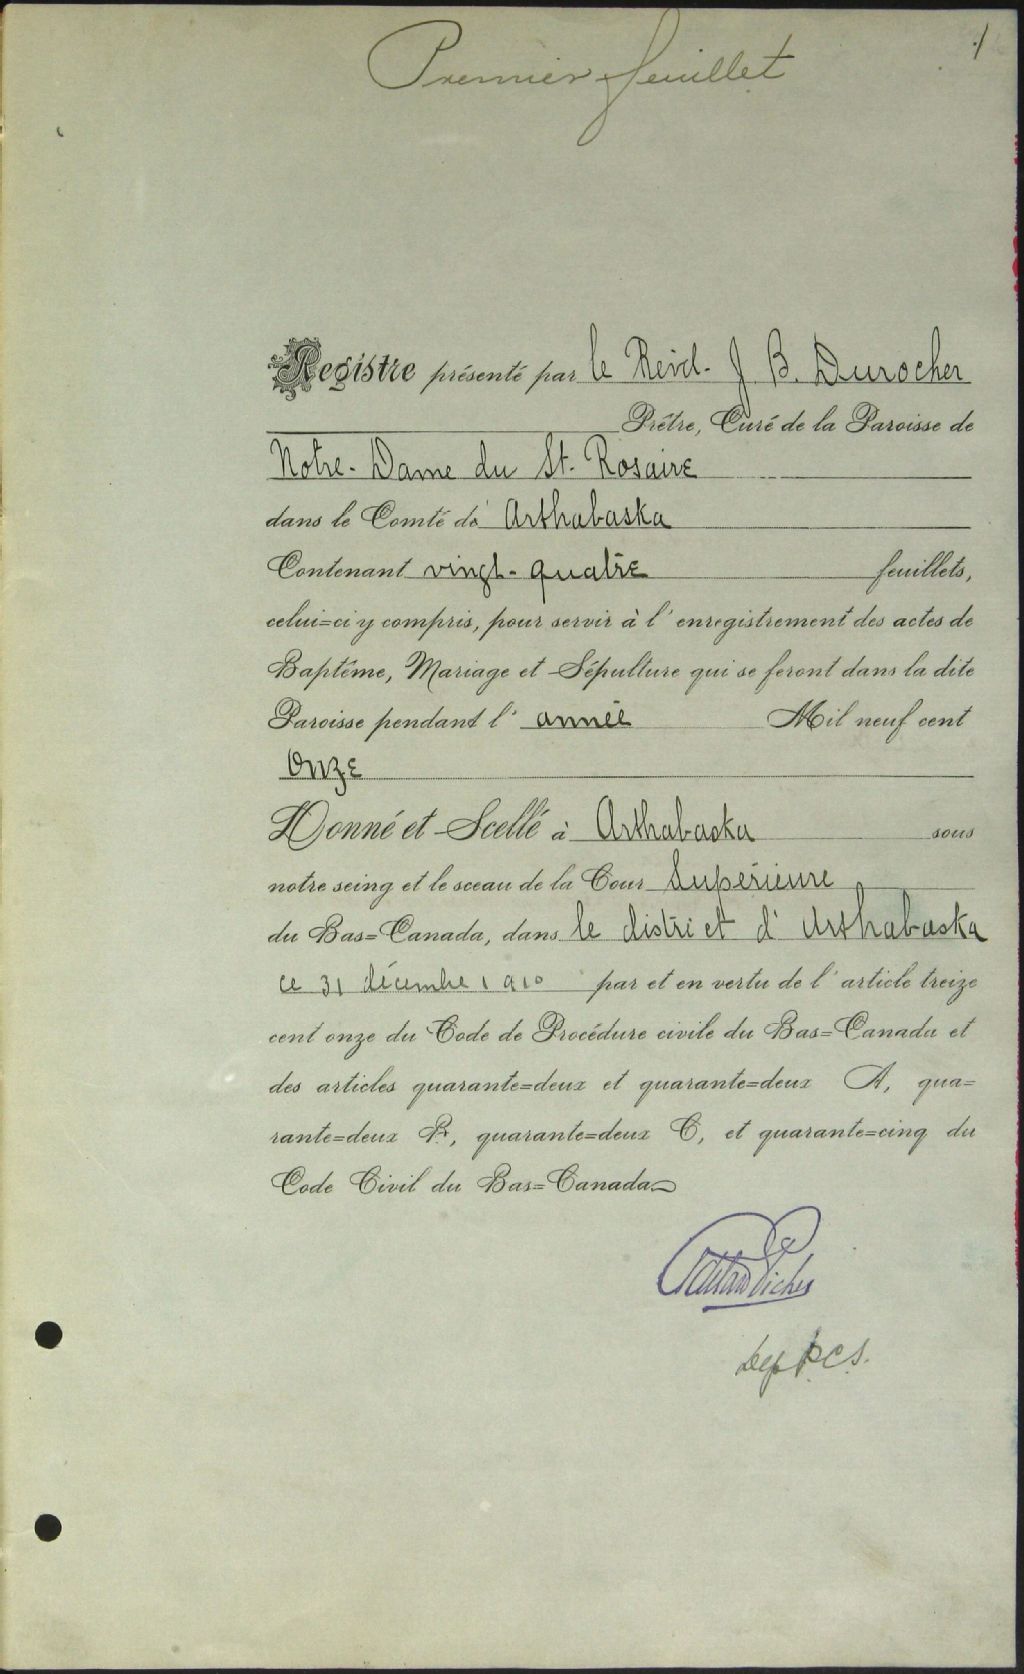 Premier feuillet
1
Registre présenté par le Révd. J B. Durocher
Prêtre, Curé de la Paroisse de
Notre-Dame du St. Rosaire
dans le Comté de Arthabaska
Contenant vingt-quatre feuillets,
celui=ci y compris, pour servir à l'enregistrement des actes de
Baptême, Mariage et Sépulture qui se feront dans la dite
Paroisse pendant l'année Mil neuf cent
Onze
Donné et Scellé à Arthabaska sous
notre seing et le sceau de la Cour Supérieure
du Bas=Canada, dans le district d'Arthabaska
ce 31 décembre 1910 par et en vertu de l'article treize
cent onze du Code de Procédure civile du Bas=Canada et
des articles quarante=deux et quarante=deux A, qua=
rante=deux B, quarante=deux C, et quarante=cinq du
Code Civil du Bas=Canada
Dep P.C.S.